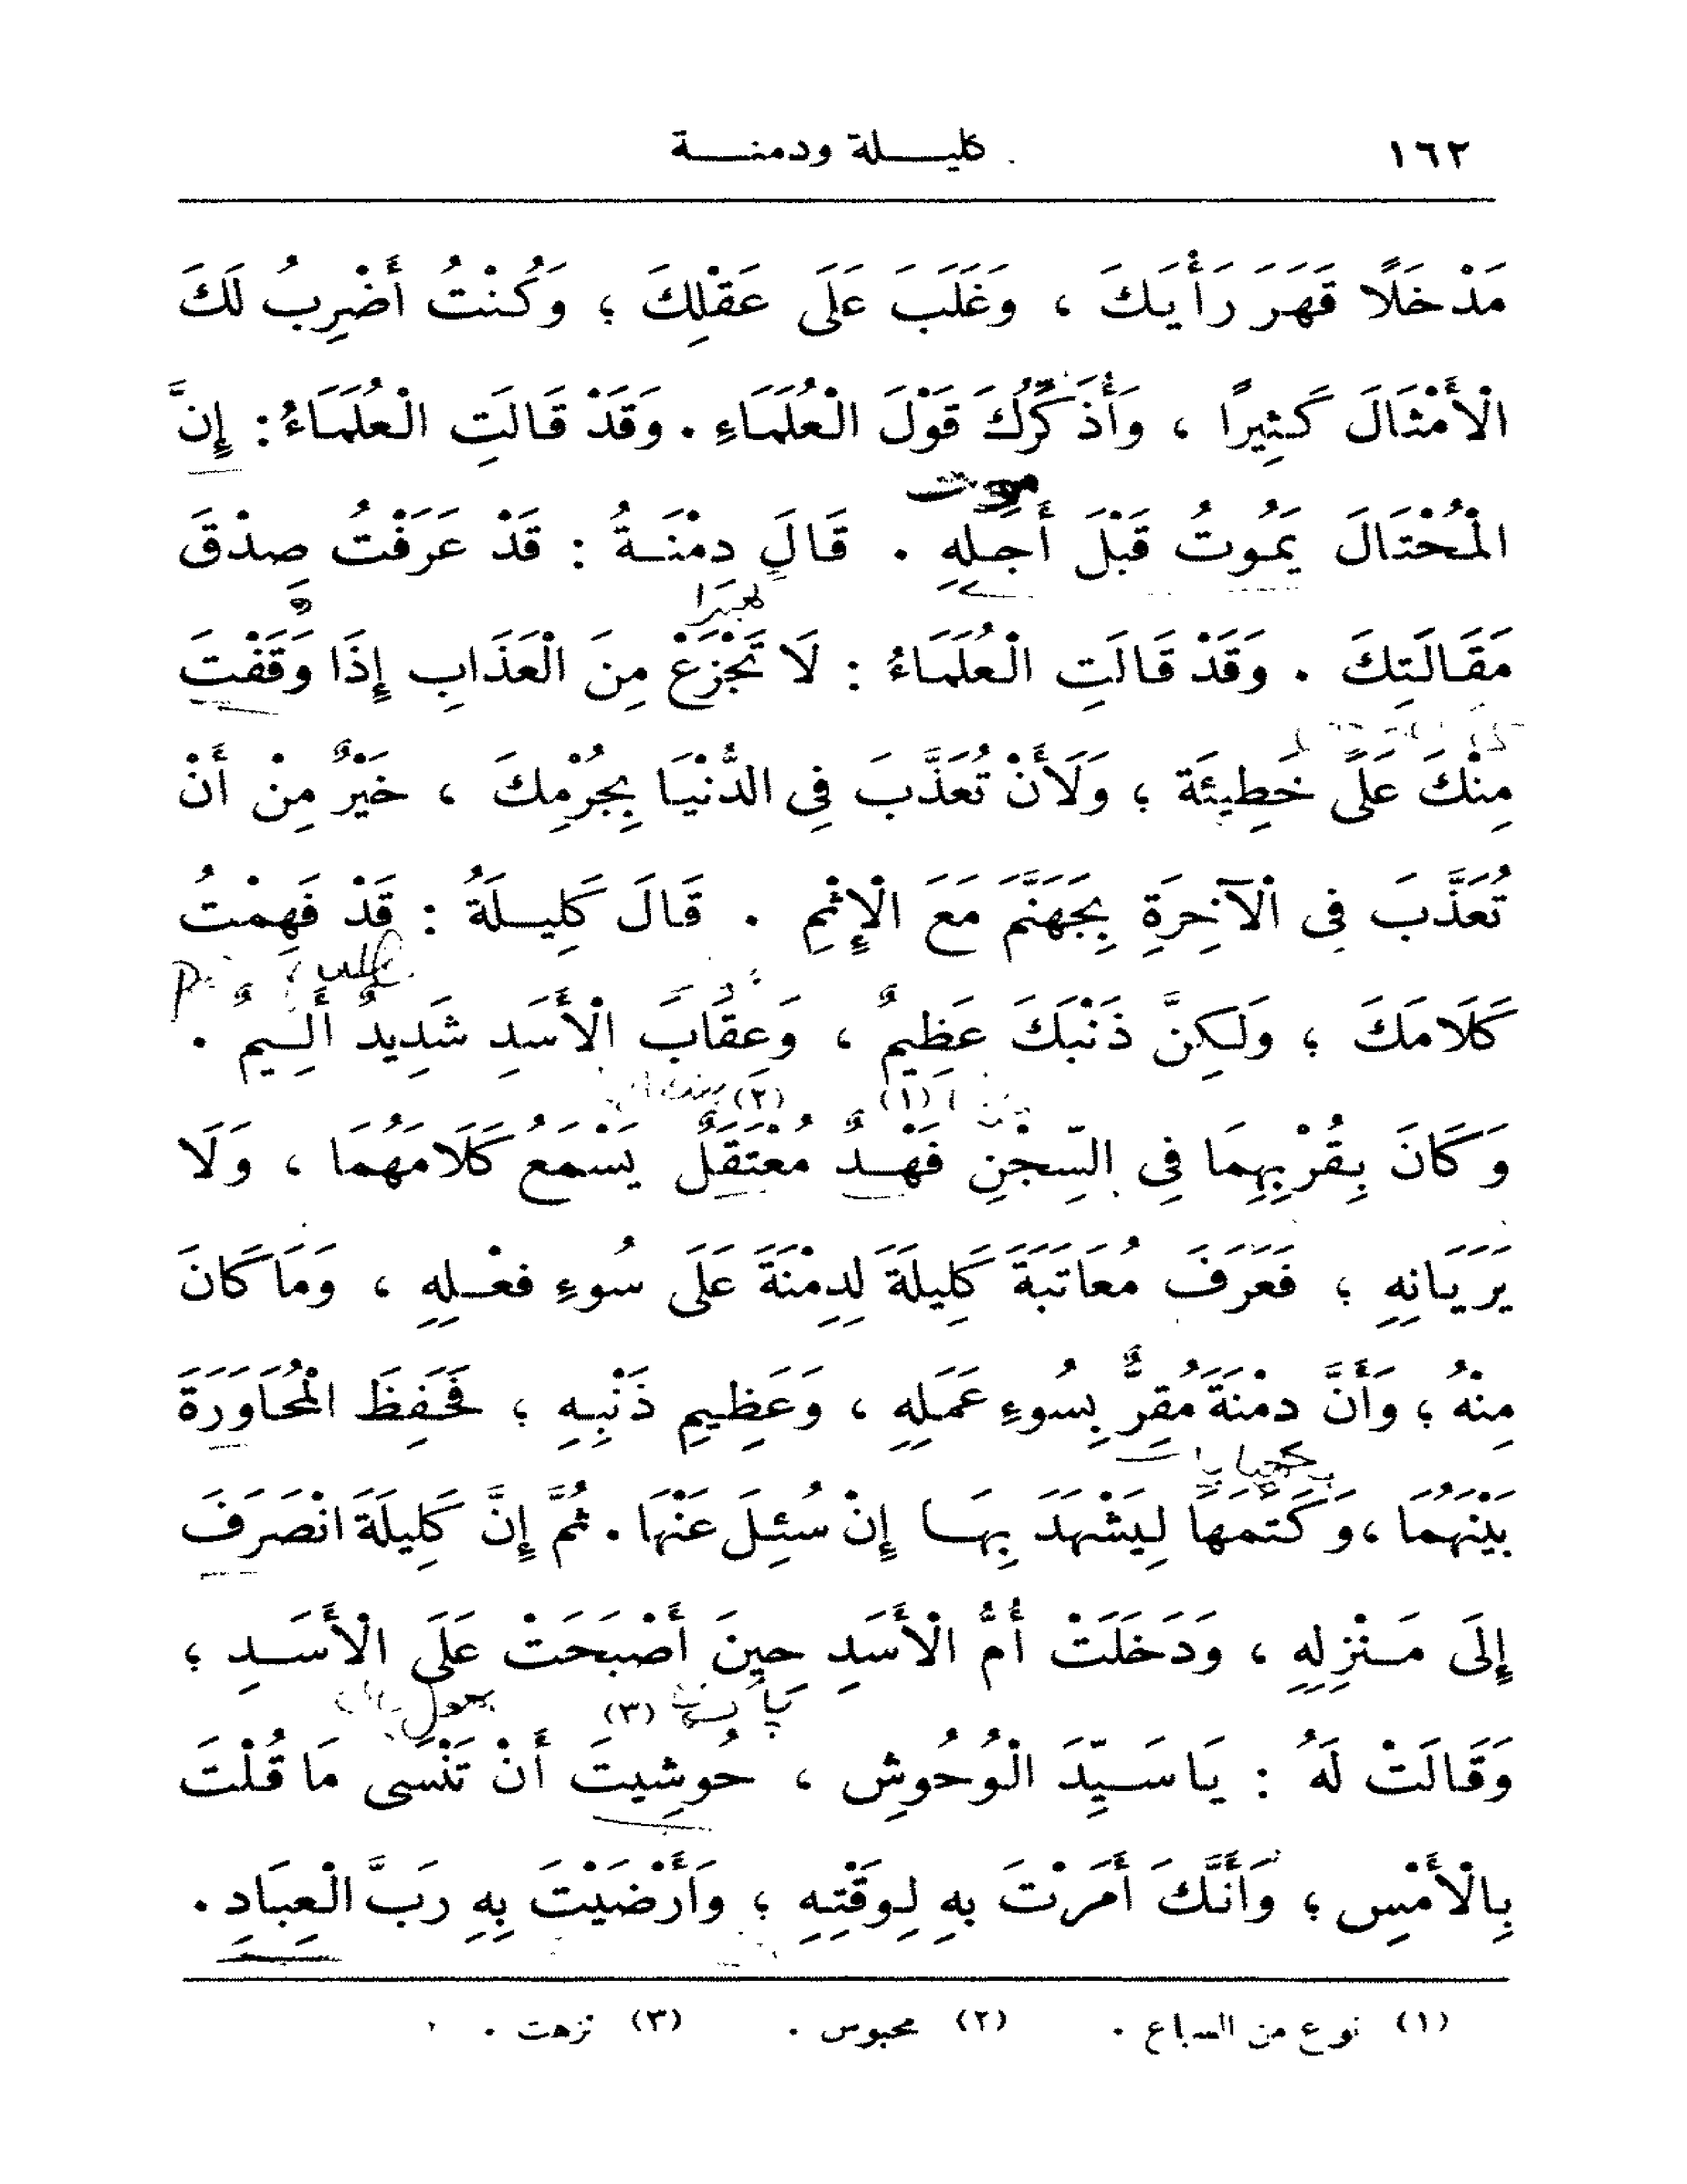 ١٦٢ كليلة ودمنة
مَدْخَلًا قَهَرَ رَأْيَكَ ، وَغَلَبَ عَلَى عَقْلِكَ ؛ وَكُنْتُ أَضْرِبُ لَكَ
الْأَمْثَالَ كَثِيرًا ، وَأُذَكِّرُكَ قَوْلَ الْعُلَمَاءِ . وَقَدْ قَالَتِ الْعُلَمَاءُ : إِنَّ
موت
الْمُحْتَالَ يَمُوتُ قَبْلَ أَجَلِهِ . قَالَ دِمْنَةُ : قَدْ عَرَفْتُ صِدْقَ
مَقَالَتِكَ . وَقَدْ قَالَتِ الْعُلَمَاءُ : لَا تَجْزَعْ مِنَ الْعَذَابِ إِذَا وَقَفْتَ
مِنْكَ عَلَى خَطِيئَة ؛ وَلَأَنْ تُعَذَّبَ فِى الدُّنْيَا بِجُرْمِكَ ، خَيْرٌ مِنْ أَنْ
تُعَذَّبَ فِى الْآخِرَةِ بِجَهَنَّمَ مَعَ الْإِثْمِ . قَالَ كَلِيلَةُ : قَدْ فَهِمْتُ
كَلَامَكَ ؛ وَلَكِنَّ ذَنْبَكَ عَظِيمٌ ، وَعِقَابَ الْأَسَدِ شَدِيدٌ أَلِيمٌ .
وَكَانَ بِقُرْبِهِمَا فِى السِّجْنِ فَهْدٌ (١) مُعْتَقَلٌ (٢) يَسْمَعُ كَلَامَهُمَا ، وَلَا
يَرَيَانِهِ ؛ فَعَرَفَ مُعَاتَبَةَ كَلِيلَةَ لِدِمْنَةَ عَلَى سُوءِ فِعْلِهِ ، وَمَا كَانَ
مِنْهُ ؛ وَأَنَّ دِمْنَةَ مُقِرٌّ بِسُوءِ عَمَلِهِ ، وَعَظِيمِ ذَنْبِهِ ؛ فَحَفِظَ الْمُحَاوَرَةَ
بَيْنَهُمَا ، وَكَتَمَهَا لِيَشْهَدَ بِهَا إِنْ سُئِلَ عَنْهَا . ثُمَّ إِنَّ كَلِيلَةَ انْصَرَفَ
إِلَى مَنْزِلِهِ ، وَدَخَلَتْ أُمُّ الْأَسَدِ حِينَ أَصْبَحَتْ عَلَى الْأَسَدِ ؛
وَقَالَتْ لَهُ : يَا سَيِّدَ الْوُحُوشِ ، حُوشِيتَ (٣) أَنْ تَنْسَى مَا قُلْتَ
بِالْأَمْسِ ؛ وَأَنَّكَ أَمَرْتَ بِهِ لِوَقْتِهِ ؛ وَأَرْضَيْتَ بِهِ رَبَّ الْعِبَادِ .
(١) نوع من السباع . (٢) محبوس . (٣) نزهت .